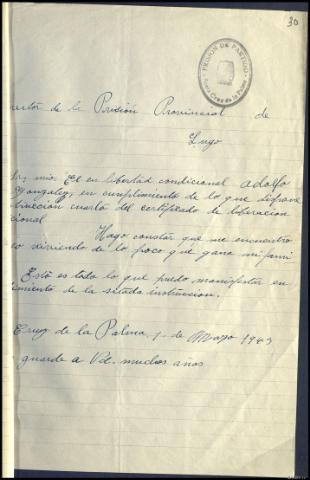 30
PRISION DE PARTIDO
Santa Cruz de la Palma
rector de la Prisión Provincial de
Lugo
mio: El en libertad condicional Adolfo
Gonzalez, en cumplimiento de lo que dispone
trucción cuarta del certificado de liberacion
cional
Hago constar que me encuentro
co viviendo de lo poco que gana mi fami
Esto es todo lo que puedo manifestar en
limiento de la sitada instrucsion.
Cruz de la Palma, 1- de Mayo 1943
guarde a Vd. muchos años